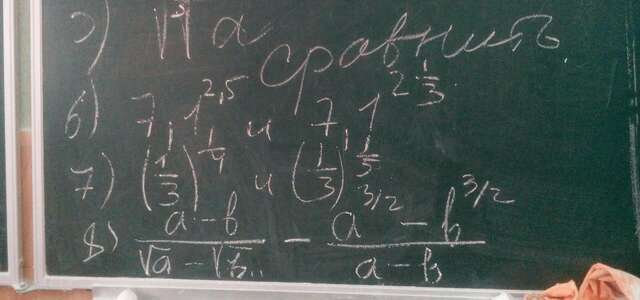 5) √a
сравнить
6) 7,1^2,5 и 7,1^2 1/3
7) (1/3)^1/4 и (1/3)^1/5
8) (a-b)/(√a-√b) - (a^3/2-b^3/2)/(a-b)